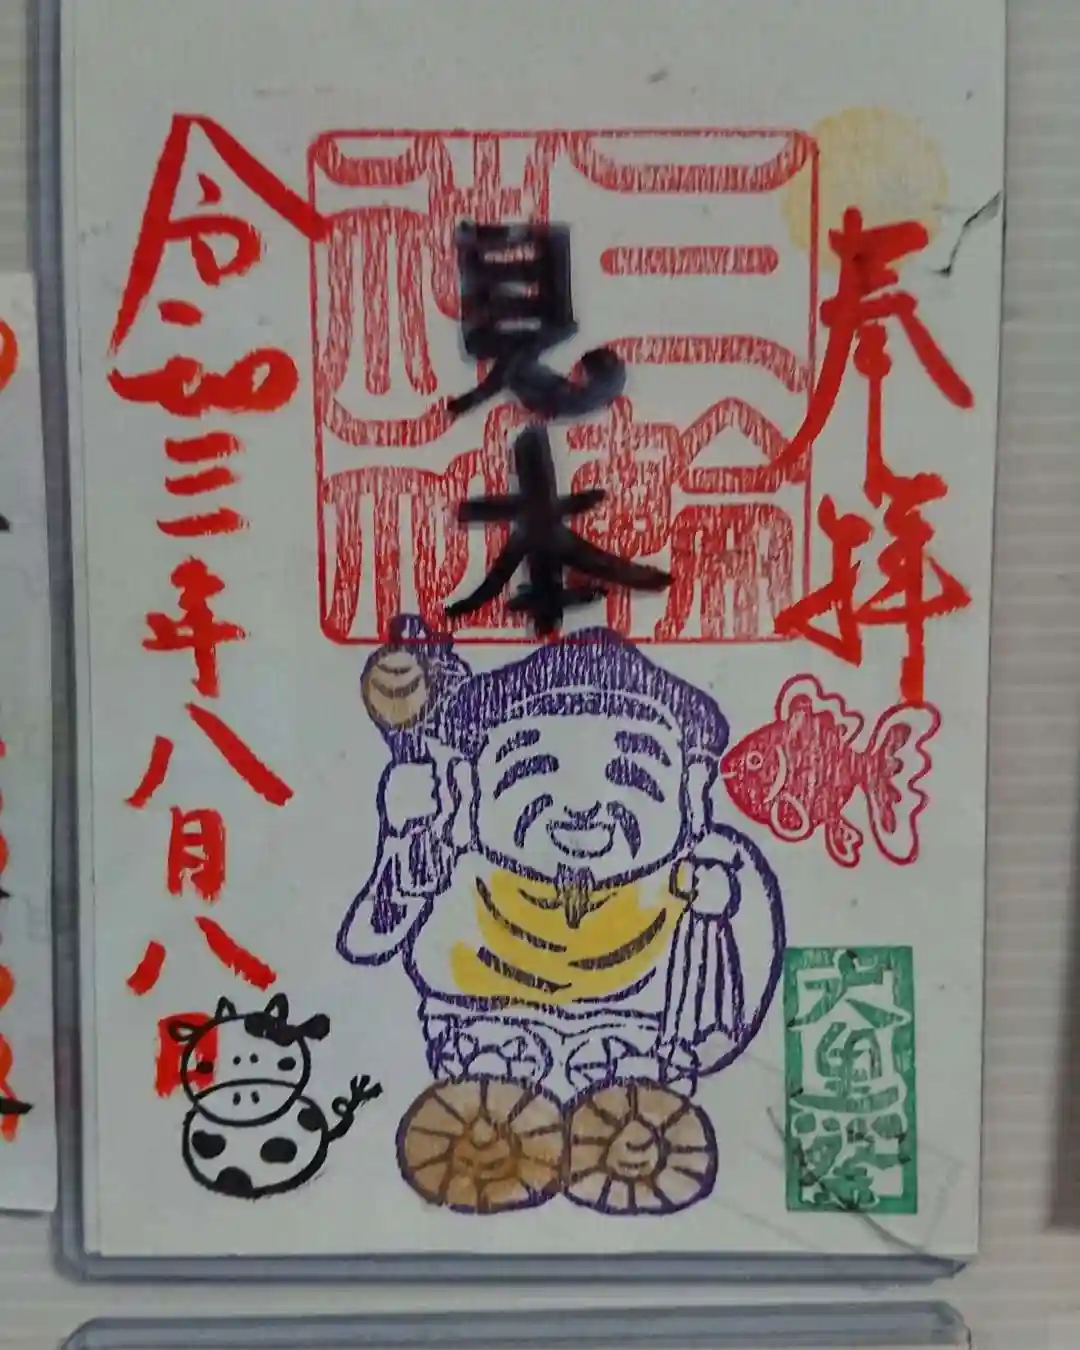 奉拝
三輪
神社
見本
令和三年八月八日
大黒祭